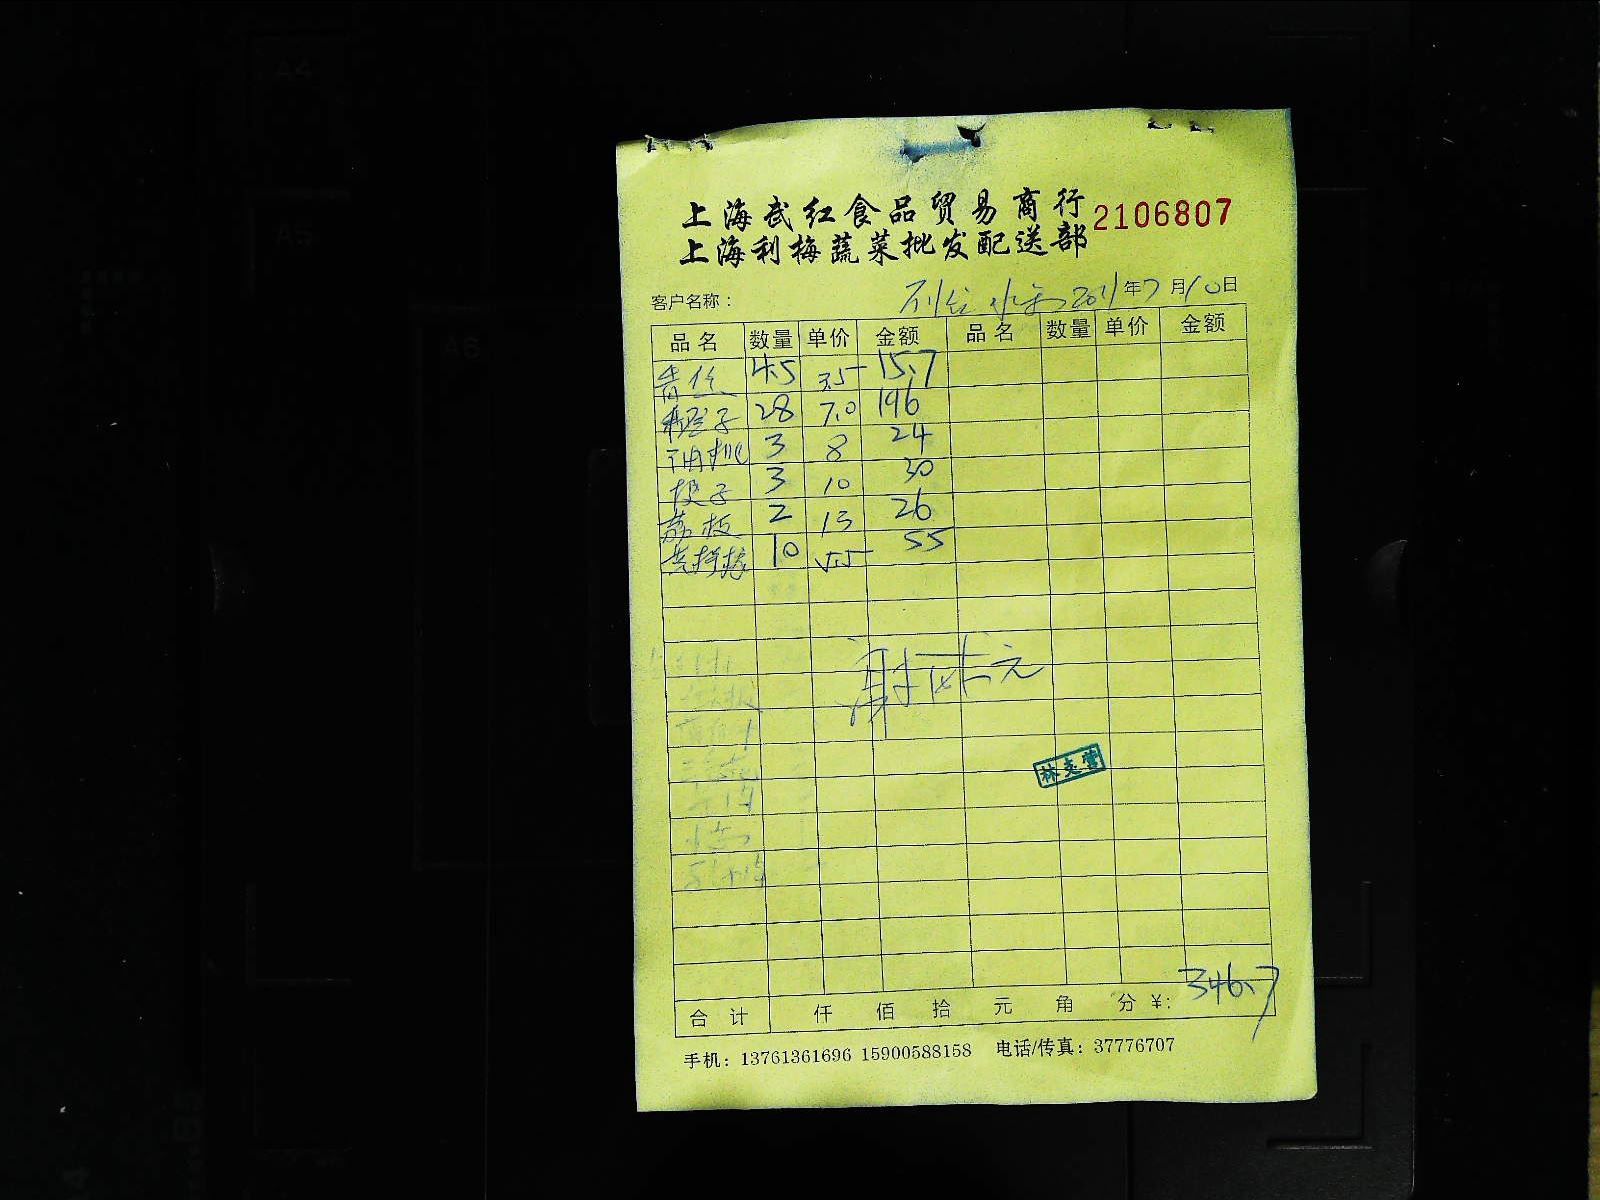 上海武红食品贸易商行 2106807
上海利梅蔬菜批发配送部
客户名称： 2021年7月10日
品名 数量 单价 金额 品名 数量 单价 金额
4.5 3.5 15.7
橙子 28 7.0 196
油桃 3 8 24
提子 3 10 30
荔枝 2 13 26
10 5.5 55
林克营
合计 仟 佰 拾 元 角 分 ￥: 346.7
手机：13761361696 15900588158 电话/传真：37776707